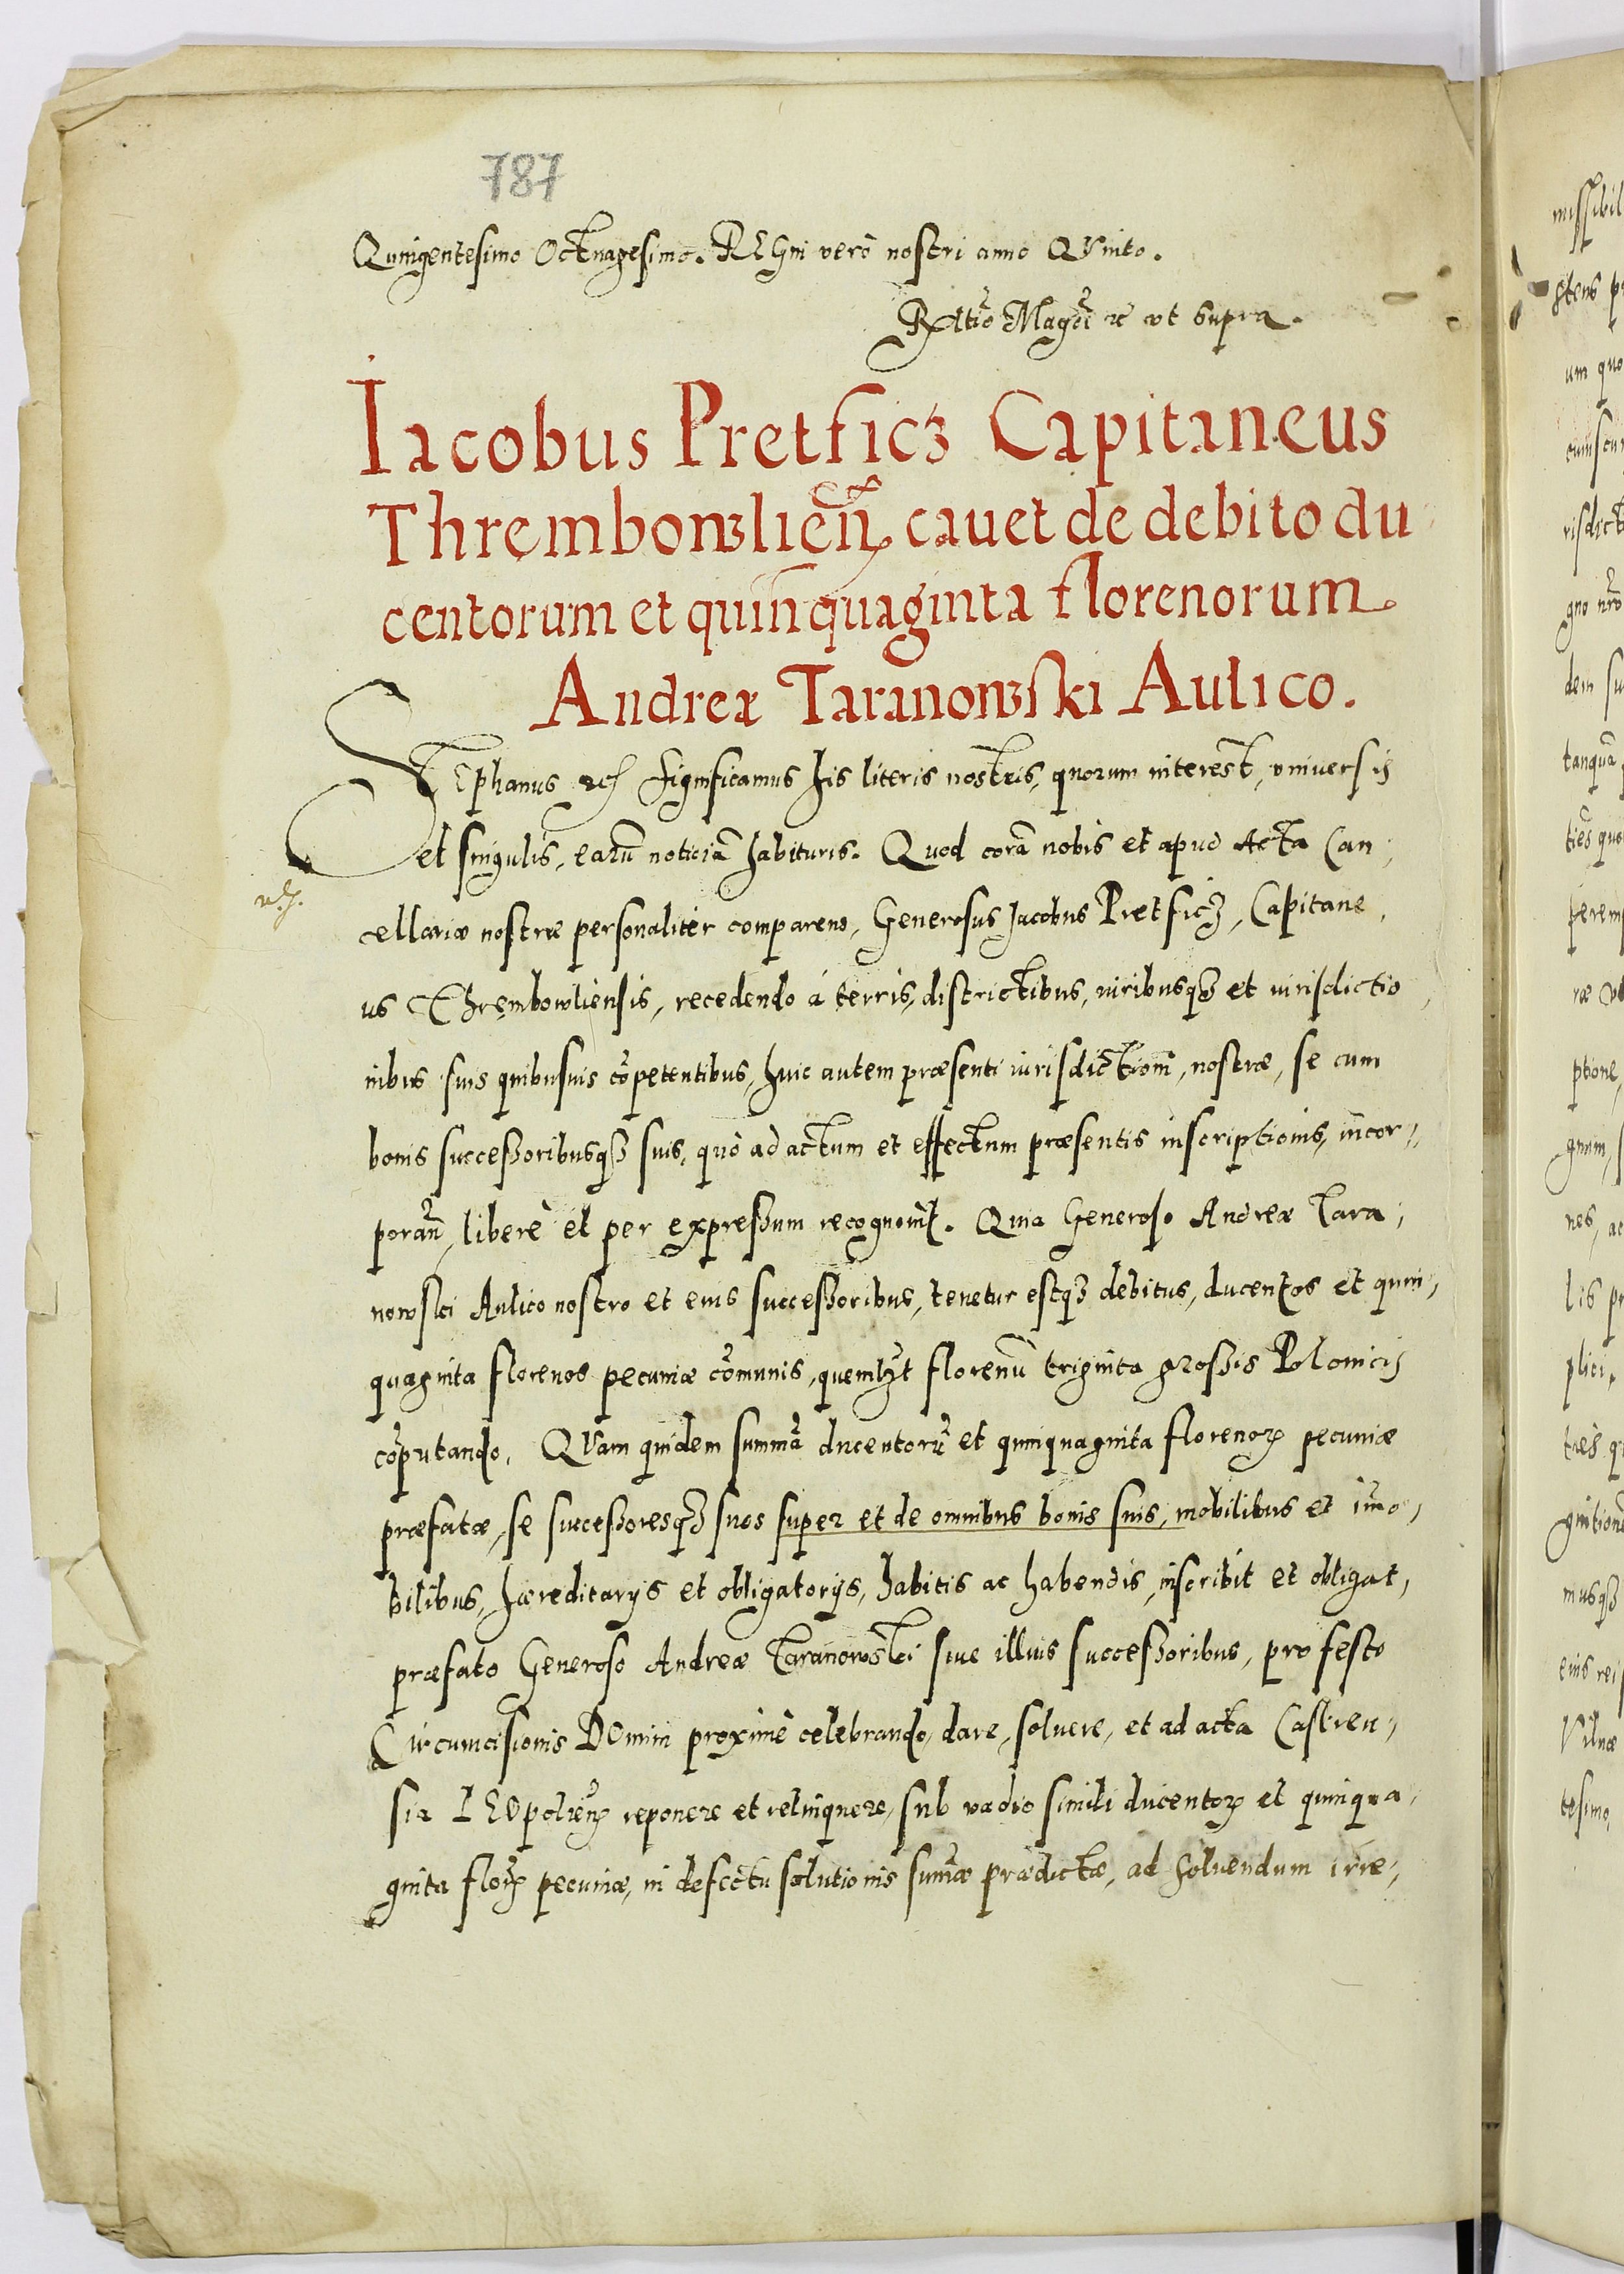 787
Quingentesimo Octuagesimo. REGni verò nostri anno QVinto.
Rãtio Magci etc ut supra.
Iacobus Pretficz Capitaneus
Thrembowlieñ cauet de debito du
centorum et quinquaginta florenorum
Andreæ Taranowski Aulico.
STEphanus etc Significamus his literis nostris, quorum interest, vniuersis
et singulis, earũ noticiã habituris. Quod corã nobis et apud Acta Can,
cellariæ nostræ personaliter comparens, Generosus Jacobus Pretficz, Capitane,
us Thrembowliensis, recedendo à terris, districtibus, iuribusq3 et iurisdictio,
nibus suis quibusuis cõpetentibus, huic autem præsenti iurisdictioni, nostræ, se cum
bonis successoribusq3 suis, quò ad actum et effectum præsentis inscriptionis, incor,,
porañ, liberè et per expressum recognouit. Quia Generoso Andreæ Tara,
nowski Aulico nostro et eius successoribus, tenetur estq3 debitus, ducentos et quin,
quaginta florenos pecuniæ cõmunis, quemlꝫt florenũ triginta grossis Polonicis
cõputando. QVam quidem summã ducentorũ et quinquaginta florenoꝝ pecuniæ
præfatæ, se successoresq3 suos super et de omnibus bonis suis, mobilibus et im̃o,
bilibus, hæreditarijs et obligatorijs, habitis ac habendis, inscribit et obligat,
præfato Generoso Andreæ Taranowski siue illius successoribus, pro festo
Circumcisionis DOmini proximè celebrando, dare, soluere, et ad acta Castren,
sia LEOpolieñ reponere et relinquere, sub vadio simili ducentoꝝ et quinqua,
ginta floꝝ pecuniæ, in defectu solutionis sum̃æ prædictæ, ad soluendum irre,